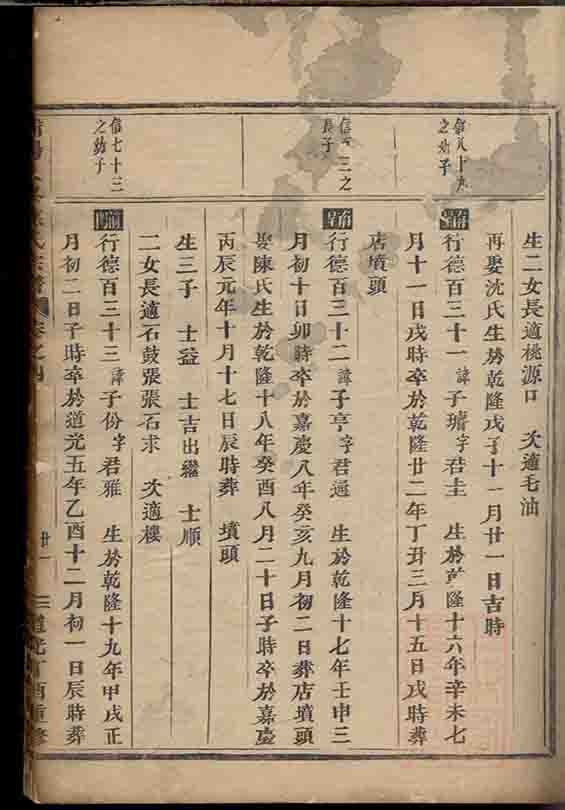 生二女長適桃源口 次適毛油
再娶沈氏生於乾隆戊子十一月廿一日吉時
信八十九
之幼子
行德百三十一諱子璿字君圭 生於乾隆十六年辛未七
月十一日戌時卒於乾隆廿二年丁丑三月十五日戌時葬
店墳頭
之
長子
行德百三十二諱子亨字君通 生於乾隆十七年壬申三
月初十日卯時卒於嘉慶八年癸亥九月初二日葬店墳頭
娶陳氏生於乾隆十八年癸酉八月二十日子時卒於嘉慶
丙辰元年十月十七日辰時葬 墳頭
生三子 士益 士吉出繼 士順
二女長適石鼓張張石求 次適樓
信七十三
之幼子
行德百三十三諱子份字君雅 生於乾隆十九年甲戌正
月初二日子時卒於道光五年乙酉十二月初一日辰時葬
氏宗譜 卷之 廿一 道光丁酉重修